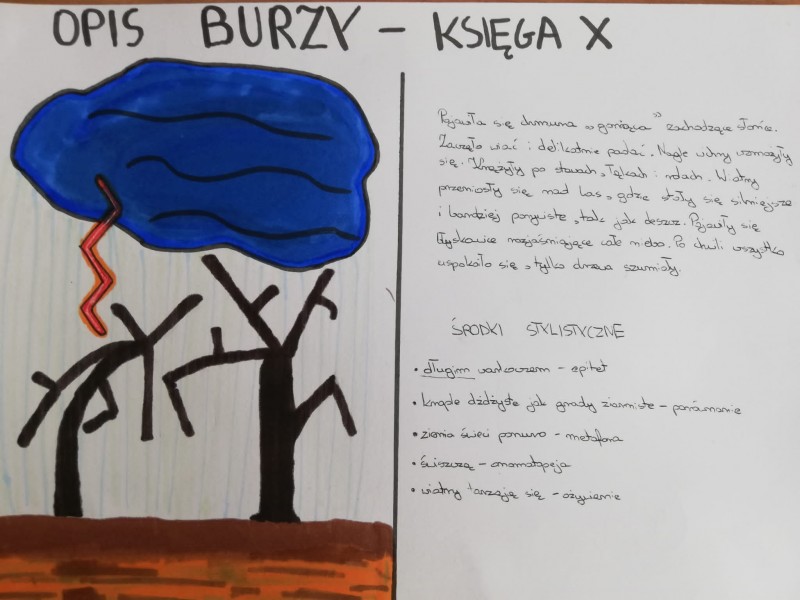 OPIS BURZY – KSIĘGA X
Pojawiła się chmura "goniąca" zachodzące słońce.
Zaczęło wiać i delikatnie padać. Nagle wichry wzmożyły
się. Krążyły po stawach, łąkach i rolach. Wiatry
przeniosły się nad las, gdzie stały się silniejsze
i bardziej porywiste, tak jak deszcz. Pojawiły się
błyskawice rozjaśniające całe niebo. Po chwili wszystko
uspokoiło się, tylko drzewa szumiały.
ŚRODKI STYLISTYCZNE
• długim warkoczem – epitet
• krople dżdżyste jak grady ziarniste – porównanie
• ziemia świeci ponuro – metafora
• świszczą – onomatopeja
• wiatry tarzają się – ożywienie